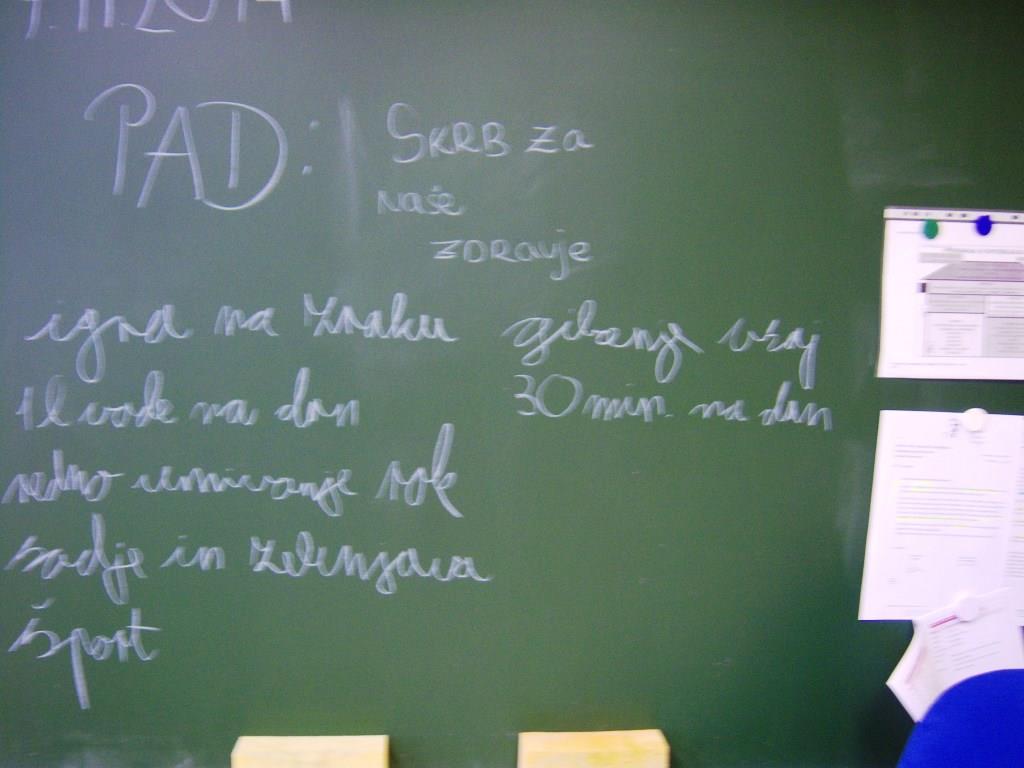 PAD: SKRB za
naše
zdravje
igra na zraku
1l vode na dan
redno umivanje rok
sadje in zelenjava
šport
gibanje vsaj
30 min. na dan